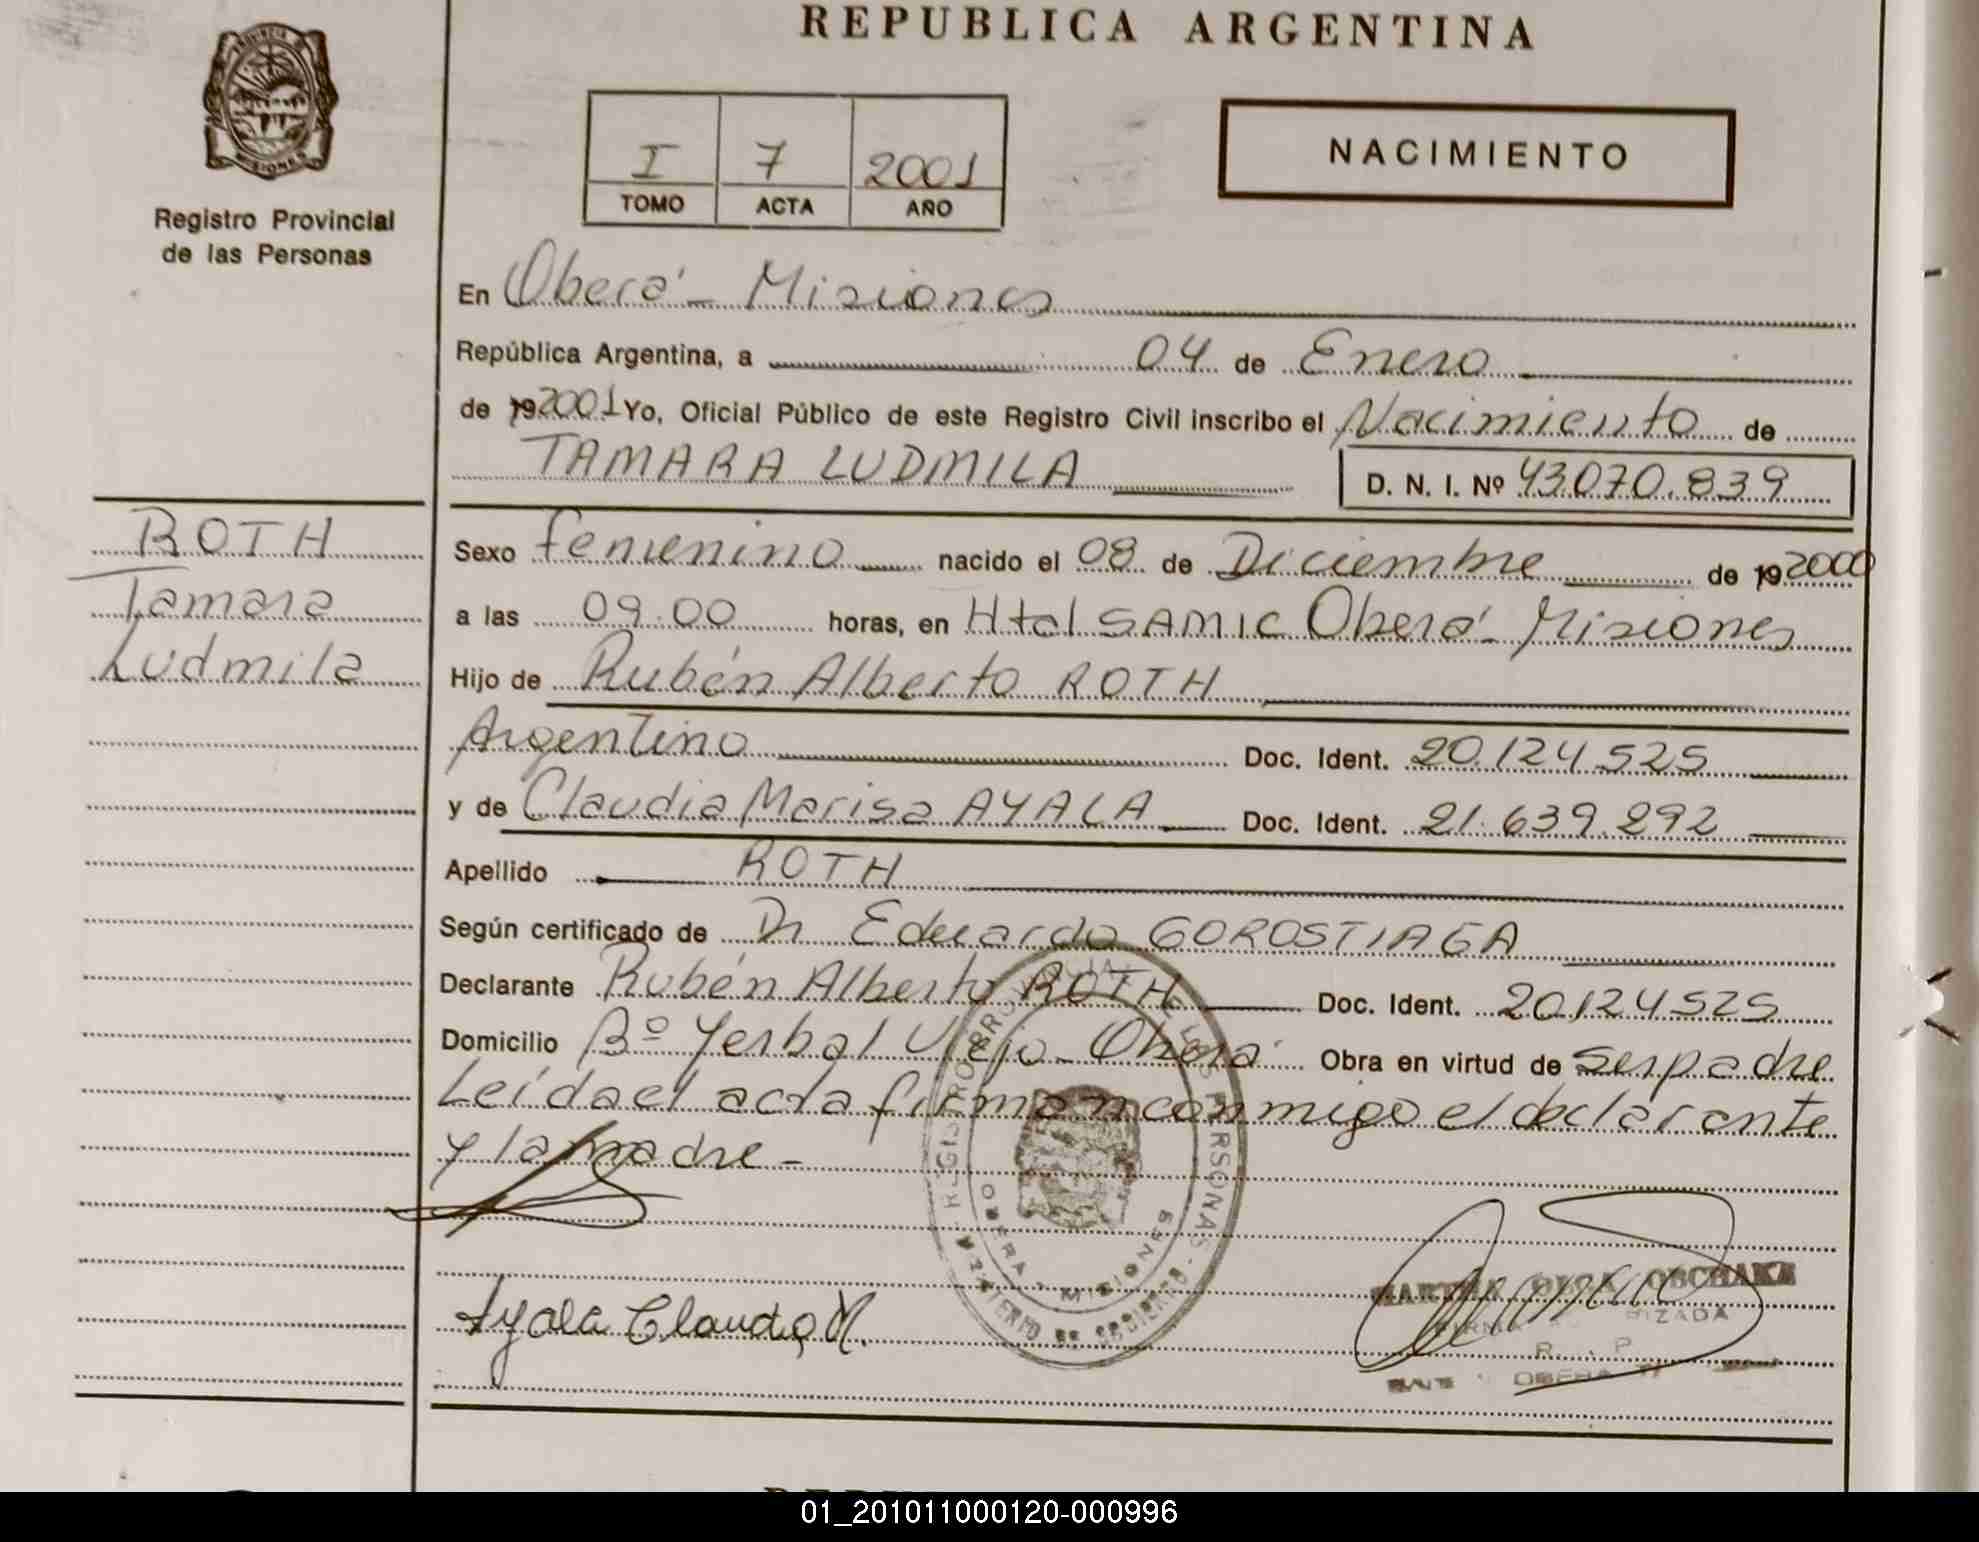 REPUBLICA ARGENTINA
PROVINCIA DE MISIONES
Registro Provincial
de las Personas
I 7 2001
TOMO ACTA AÑO
NACIMIENTO
En Oberá - Misiones
República Argentina, a 04 de Enero
de 192001 Yo, Oficial Público de este Registro Civil inscribo el Nacimiento de
TAMARA LUDMILA D. N. I. Nº 43.070.839
ROTH
Tamara
Ludmila
Sexo femenino nacido el 08 de Diciembre de 192000
a las 09.00 horas, en Htal SAMIC Oberá - Misiones
Hijo de Rubén Alberto ROTH
Argentino Doc. Ident. 20.124.525
y de Claudia Marisa AYALA Doc. Ident. 21.639.292
Apellido ROTH
Según certificado de Dr Eduardo GOROSTIAGA
Declarante Rubén Alberto ROTH Doc. Ident. 20.124525
Domicilio Bº Yerbal Viejo - Oberá Obra en virtud de ser padre
Leída el acta firman conmigo el declarante
y la madre -
REGISTRO PROVINCIAL DE LAS PERSONAS
MINISTERIO DE GOBIERNO
OBERA - MISIONES
Ayala Claudia M.
OLGA
R. P.
OBERA
01_201011000120-000996